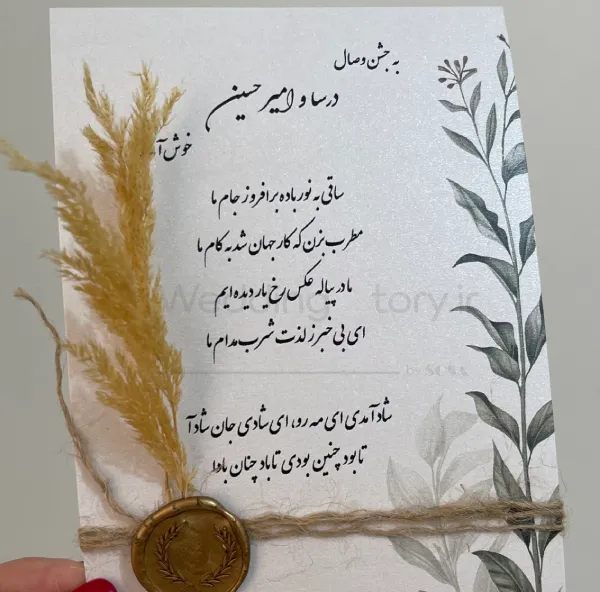 به جشن وصال
درسا و امیرحسین
خوش آ
ساقی به نور باده برافروز جام ما
مطرب بزن که کار جهان شد به کام ما
Wedding tory.ir
ما در پیاله عکس رخ یار دیده ایم
ای بی خبر ز لذت شرب مدام ما
شاد آمدی ای مه رو، ای شادی جان شاد آ
تا بود چنین بودی تا باد چنان بادا